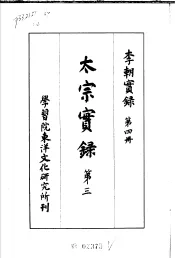 李朝實錄 第四冊
太宗實錄 第三
學習院東洋文化研究所刊